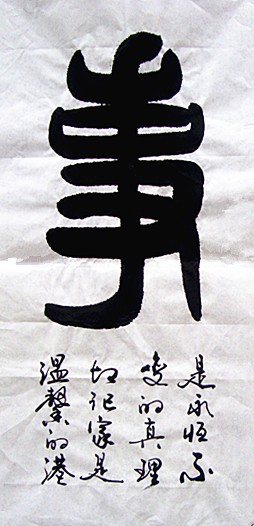 事
是永恒不
变的真理
切记家是
温馨的港